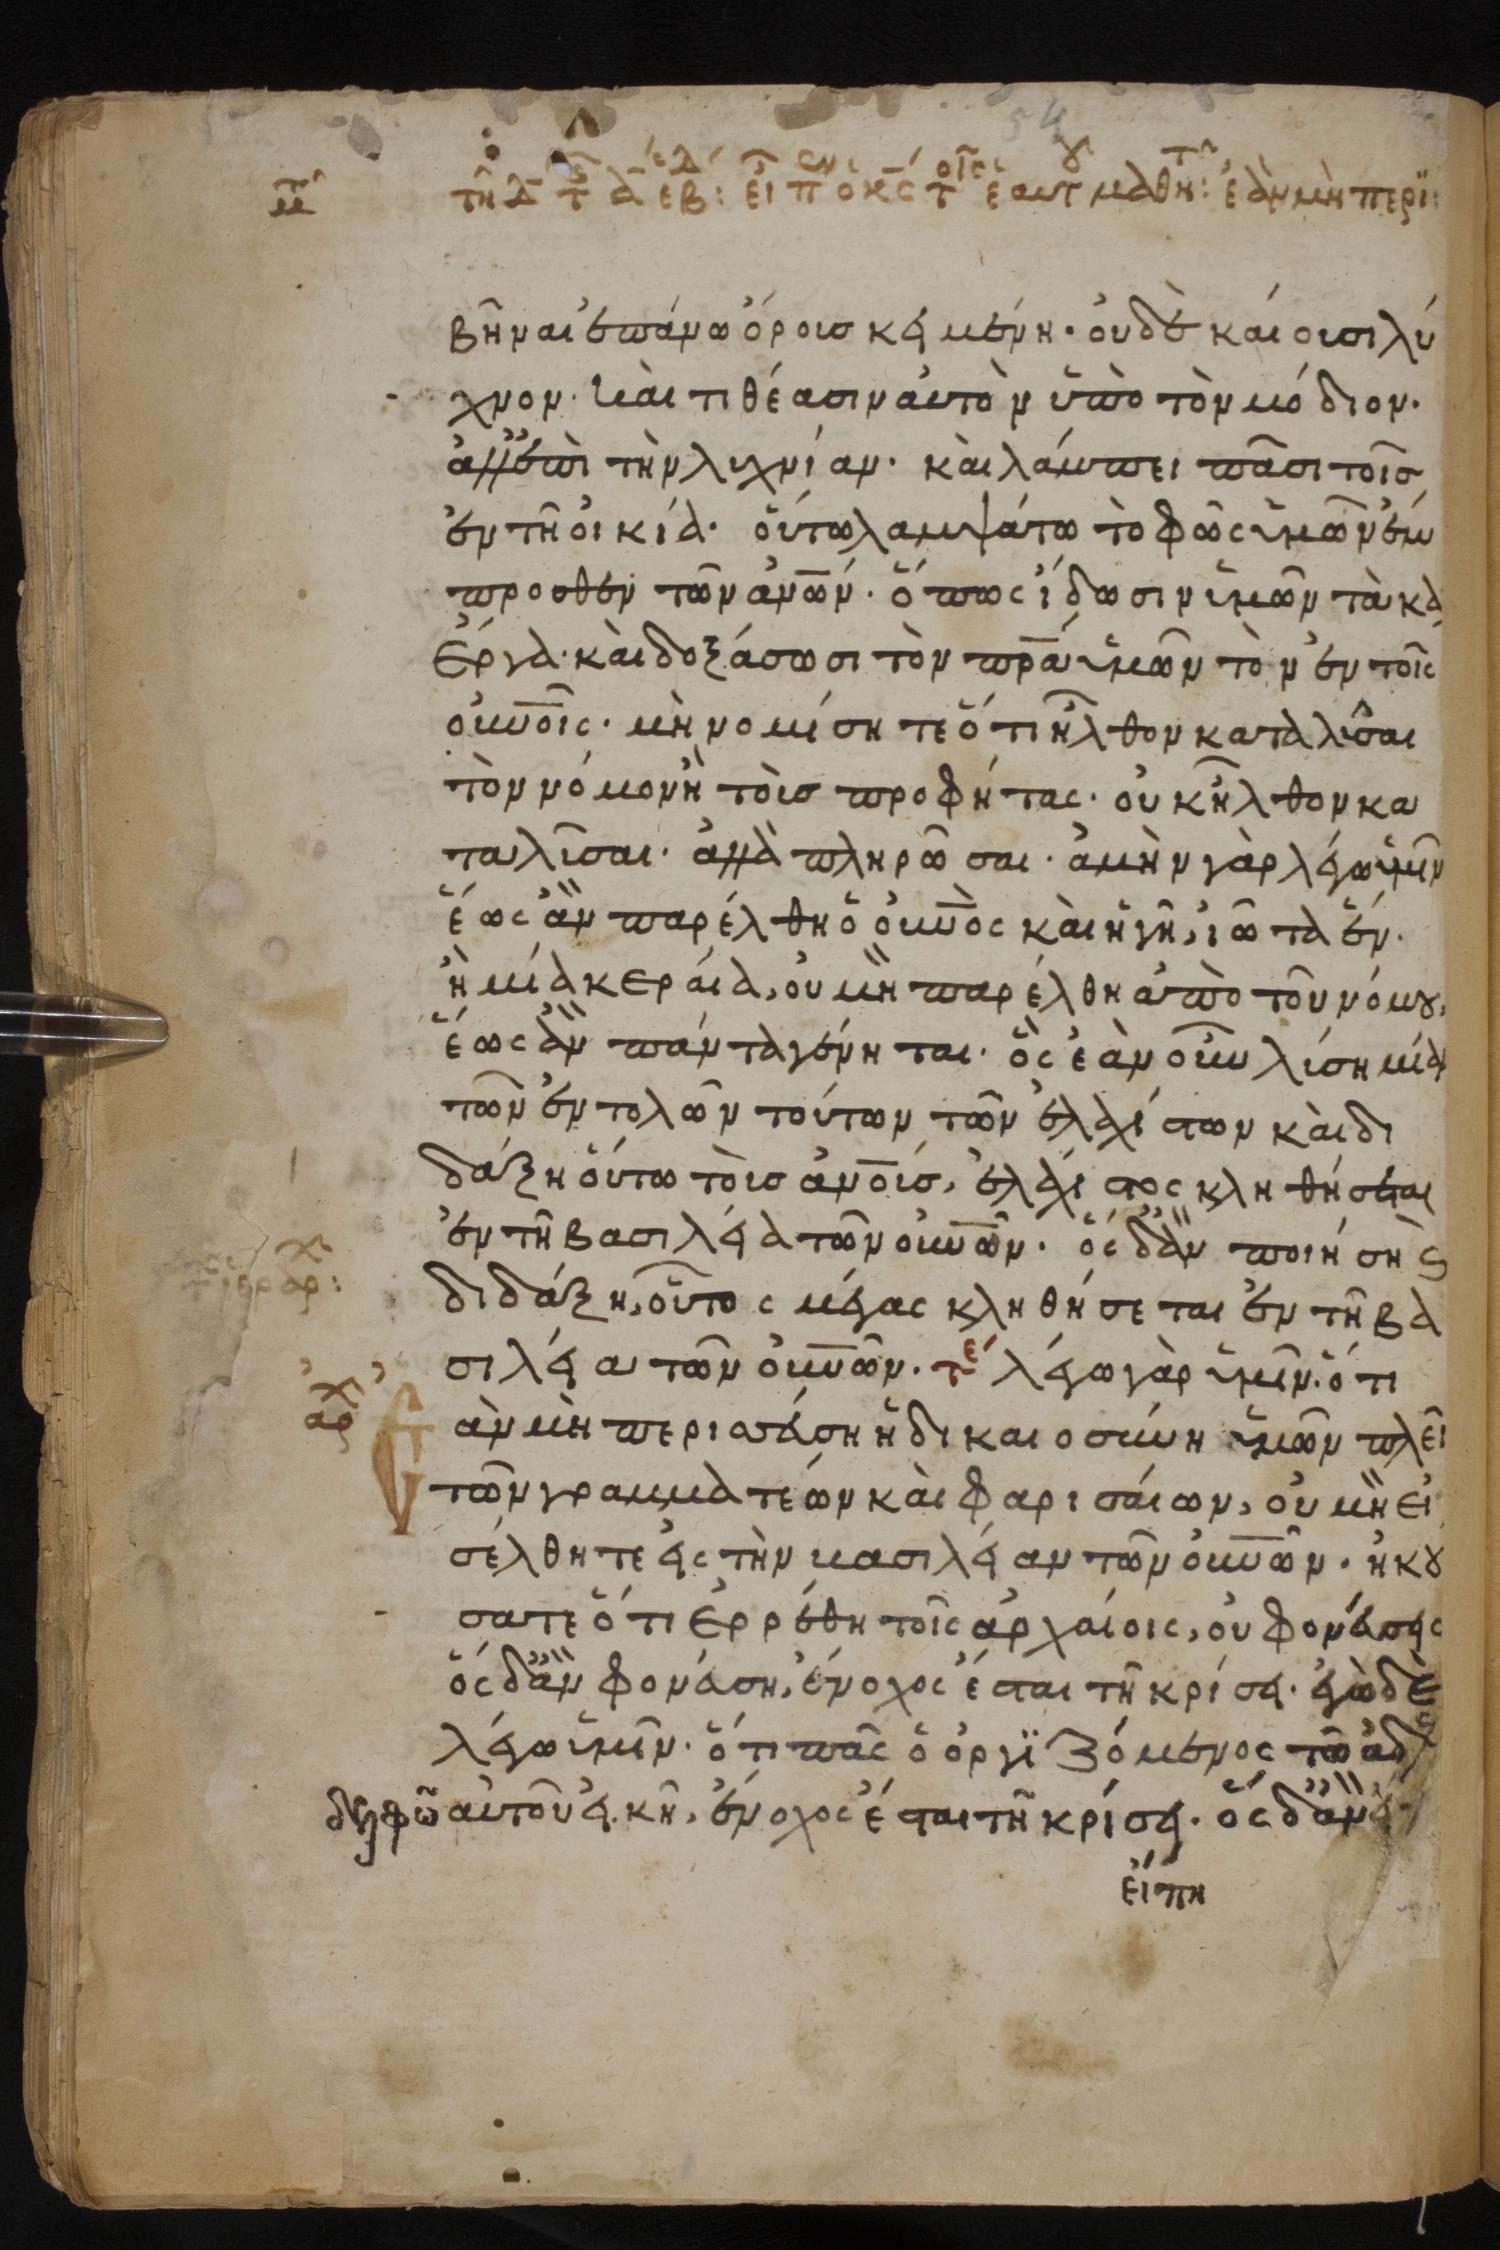 τῆ δ τ ἑβ: εἶπ ὁ κς τ ἑαυτ μαθη: ἐὰν μὴ περϊ:
βῆναι ἐπάνω ὄρους κειμένη· οὐδὲ καίουσι λύ
χνον· καὶ τιθέασιν αὐτὸν ὑπὸ τὸν μόδιον·
ἀλλ' ἐπὶ τὴν λυχνίαν· καὶ λάμπει πᾶσι τοῖς
ἐν τῆ οἰκία· οὕτω λαμψάτω τὸ φῶς ὑμῶν ἔμ
προσθεν τῶν ἀνων· ὅπως ἴδωσιν ὑμῶν τὰ κα
ἔργα· καὶ δοξάσωσι τὸν πρα ὑμῶν τὸν ἐν τοῖς
οὐνοῖς· μὴ νομίσητε ὅτι ἦλθον καταλῦσαι
τὸν νόμον ἢ τοὺς προφήτας· οὐκ ἦλθον κα
ταλῦσαι· ἀλλὰ πληρῶσαι· ἀμὴν γὰρ λέγω ὑμῖν
ἕως ἂν παρέλθη ὁ οὐνὸς καὶ ἡ γῆ, ἰῶτα ἓν·
ἢ μία κεραία, οὐ μὴ παρέλθη ἀπὸ τοῦ νόμου,
ἕως ἂν πάντα γένηται· ὃς ἐὰν οὖν λύση μίαν
τῶν ἐντολῶν τούτων τῶν ἐλαχίστων καὶ δι
δάξη οὕτω τοὺς ἀνους, ἐλάχιστος κληθήσεται
ἐν τῆ βασιλεία τῶν οὐνῶν· ὃς δ' ἂν ποιήση ϗ
διδάξη, οὗτος μέγας κληθήσεται ἐν τῆ βα
σιλεία τῶν οὐνῶν· τε λέγω γὰρ ὑμῖν· ὅτι
αρχ Ἐὰν μὴ περισσεύση ἡ δικαιοσύνη ὑμῶν πλεῖ
τῶν γραμματέων καὶ φαρισαίων, οὐ μὴ εἰ
σέλθητε εἰς τὴν βασιλείαν τῶν οὐνῶν· ἠκού
σατε ὅτι ἐρρέθη τοῖς ἀρχαίοις, οὐ φονεύσεις
ὃς δ' ἂν φονεύση, ἔνοχος ἔσται τῆ κρίσει· ἐγὼ δὲ
λέγω ὑμῖν· ὅτι πᾶς ὁ ὀργϊζόμενος τῶ ἀδελ
δελφῶ αὐτοῦ εἰκῆ, ἔνοχος ἔσται τῆ κρίσει· ὃς δ' ἂν
εἴπη